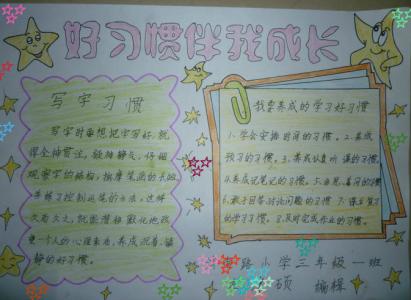 好习惯伴我成长
写字习惯
写字时要想把字写好,就
得全神贯注,凝神静气,仔细
观察字的结构,揣摩笔画的长短
并练习控制运笔的方法。这样
久而久之,就能潜移默化地改
变一个人的心理素质,养成沉着、镇
静的好习惯。
我要养成的学习好习惯
1.学会安排时间的习惯。2.养成
预习的习惯。3.养成认真听课的习惯。
4.养成记笔记的习惯。5.
6.敢于回答讨论问题的习惯。7.课后复习
的学习习惯。8.及时完成作业的习惯。
小学三年级一班
硕 编辑